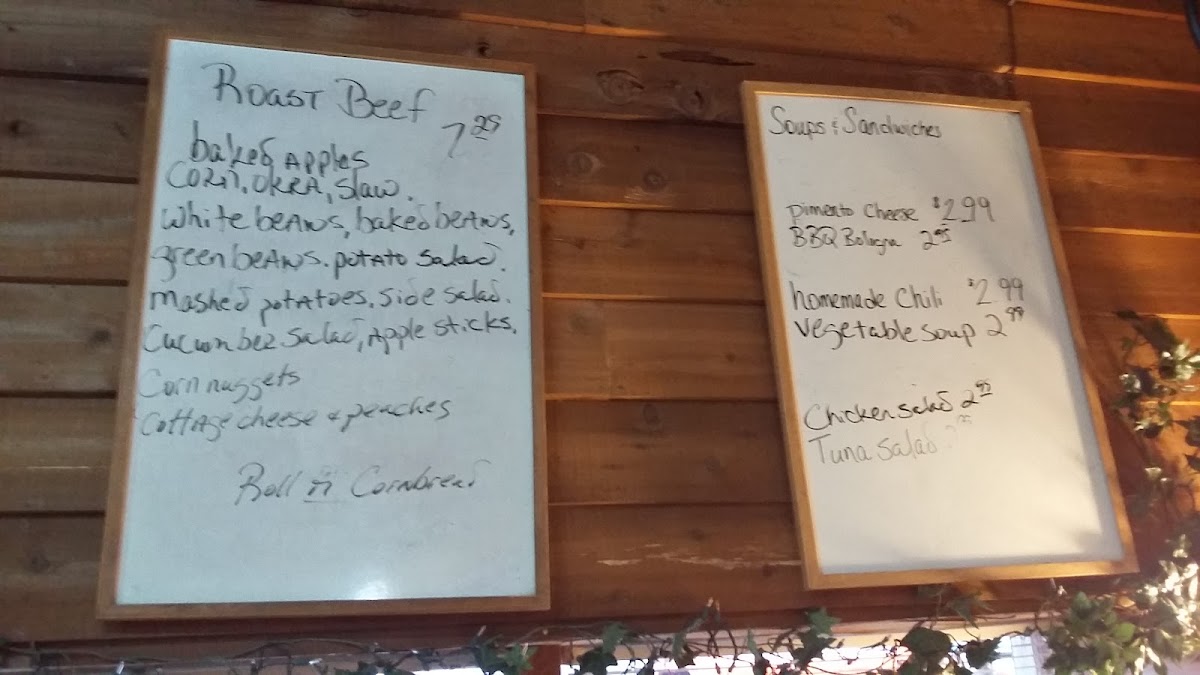 Roast Beef
7 25
baked Apples
CORN, OKRA, Slaw.
white beans, baked beans,
green beans. potato salad.
mashed potatoes. side salad.
Cucumber salad, Apple sticks.
Corn nuggets
Cottage cheese & peaches
Roll Cornbread
Soups & Sandwiches
pimento Cheese $2.99
BBQ Bologna 2 95
homemade Chili $2.99
vegetable soup 2 99
Chicken salad 2 95
Tuna salad